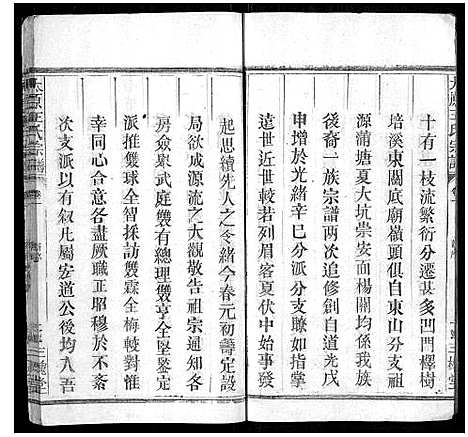 太原王氏宗譜
十有一枝流繁衍分遷甚多凹門檡樹
培溪東關底廟嶺頭俱自東山分支祖
源蒲塘夏大坑崇安面楊關均係我族
後裔一族宗譜兩次追修創自道光戊
申增於光緒辛巳分派分支瞭如指掌
遠世近世較若列眉客夏伏中始議事
起思續先人之令緒今春元初壽定設
局欲成源流之大觀敬告祖宗通知衆
房僉衆武庭雙有總理雙亨全堅鉴定
派推雙球全智採訪雙霖全梅較對惟
幸同心合志各盡厥職正昭穆於不紊
次支派以有叙凡屬安道公後均入吾
太原王氏宗譜
三槐堂